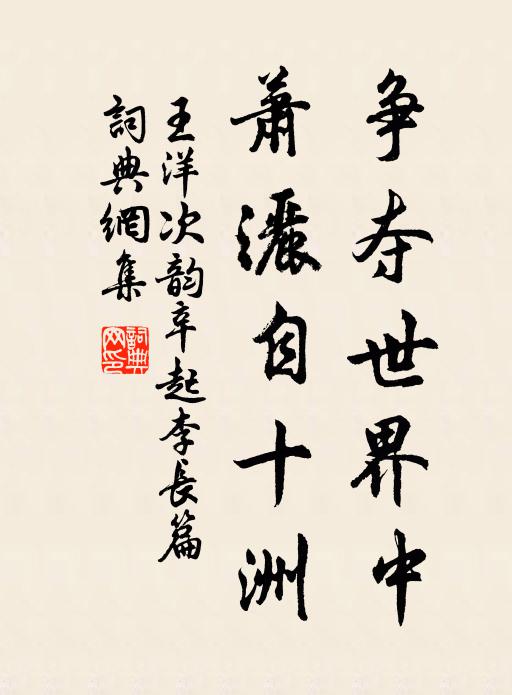 争夺世界中
萧灑自十洲
王洋次韵辛起李長篇
詞典網集
詞典网印